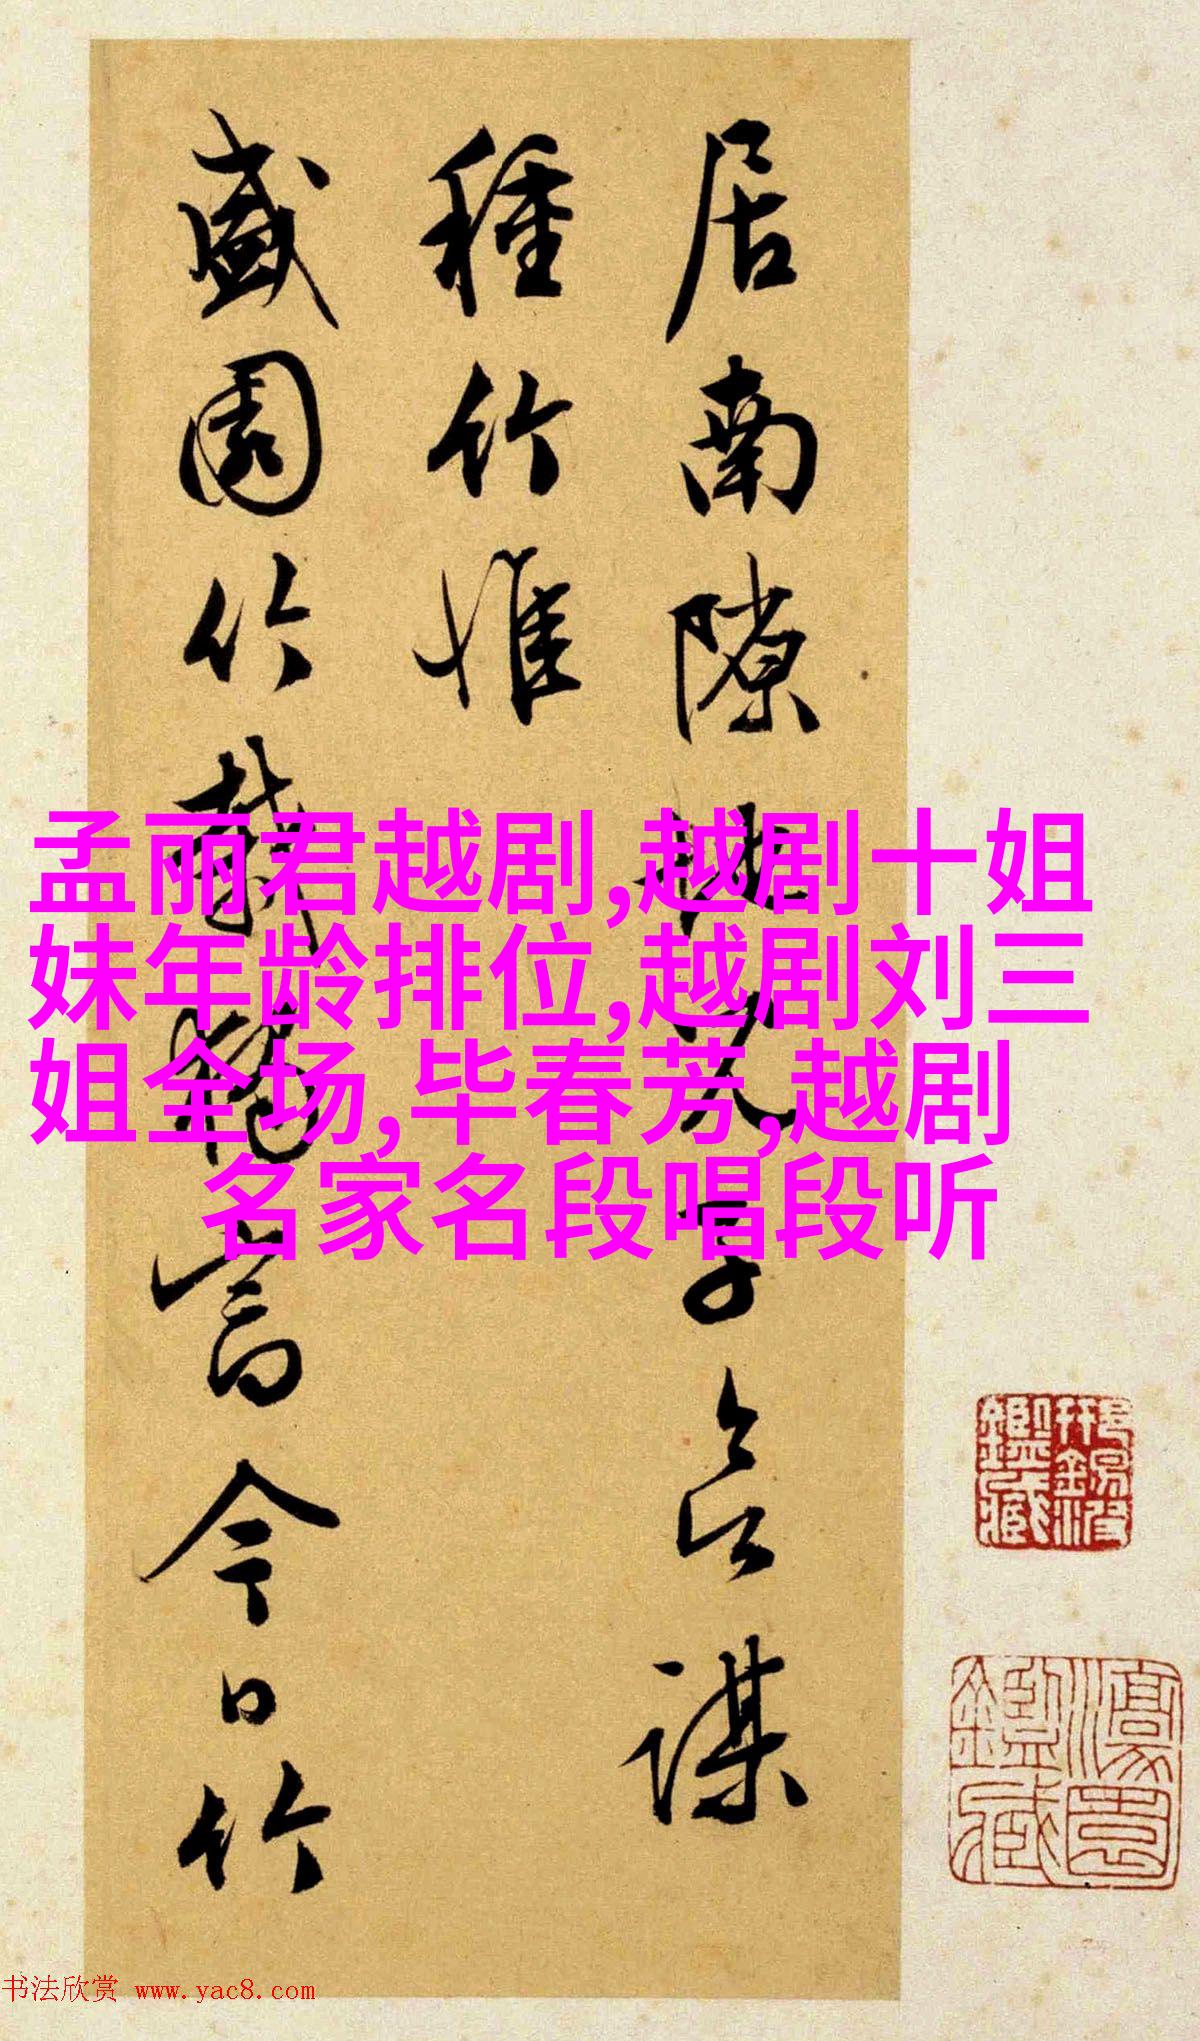 孟丽君越剧,越剧十姐
妹年龄排位,越剧刘三
姐全场,毕春芳,越剧
名家名段唱段听
居南隙地兄子謀
種竹惟
盛園竹言今日竹
鑑藏
鑑藏
书法欣赏 www.yac8.com